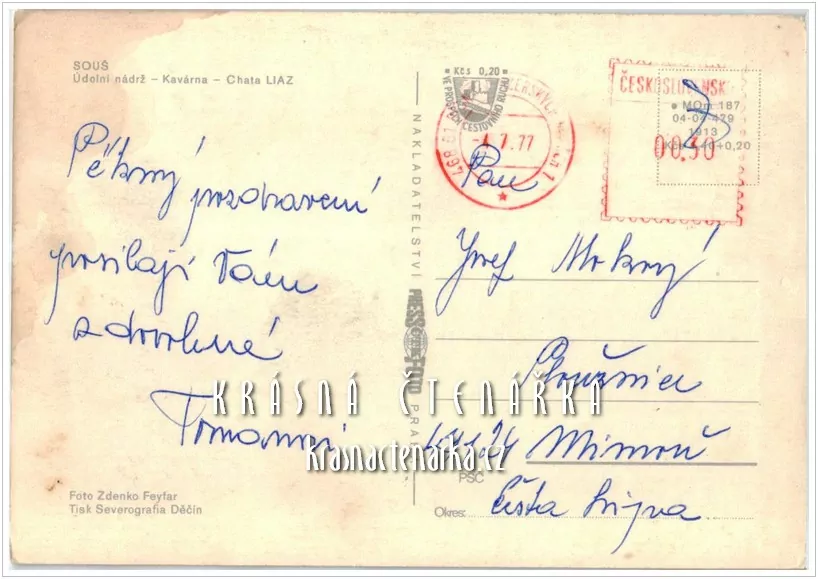 SOUŠ
Údolní nádrž – Kavárna – Chata LIAZ
Pěkný pozdravení
posílají Vám
z dovolené
Tomanovi
Foto Zdenko Feyfar
Tisk Severografia Děčín
NAKLADATELSTVÍ PRESSFOTO PRAHA
Kčs 0,20
VE PROSPĚCH CESTOVNÍHO RUCHU
468 51
7.77
ČESKOSLOVENSK
MOm 187
04-04-479
1913
00.30
+0,20
Pan
Josef Mokrý
Ploužnice
Mimoň
PSČ
Česká Lípa
Okres:
KRÁSNÁ ČTENÁŘKA
krasnactenarka.cz